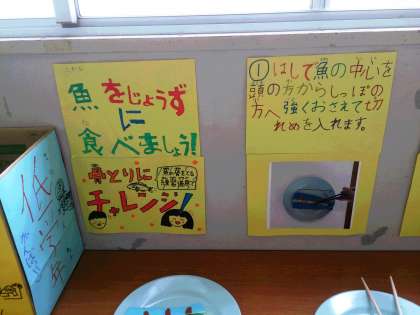 魚をじょうず
に
食べましょう!
骨とりに
チャレンジ!
①はしで魚の中心を
頭の方からしっぽの
方へ強くおさえて切
れめを入れます。
低学年
がんばれ